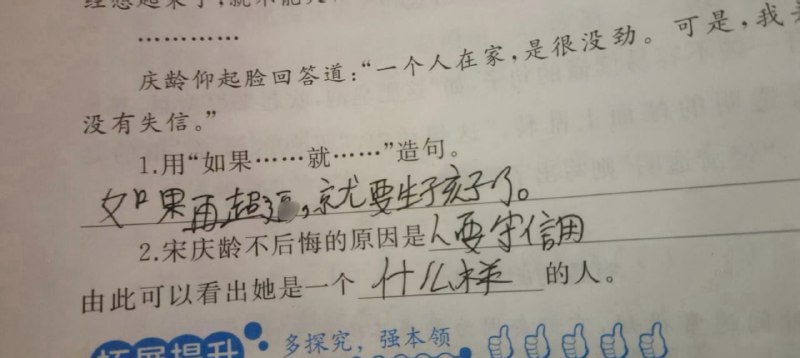 …………
庆龄仰起脸回答道:“一个人在家,是很没劲。可是,我
没有失信。”
1.用“如果……就……”造句。
如果再超,就要生孩子了。
2.宋庆龄不后悔的原因是人要守信用
由此可以看出她是一个 什么样 的人。
拓展提升 多探究,强本领